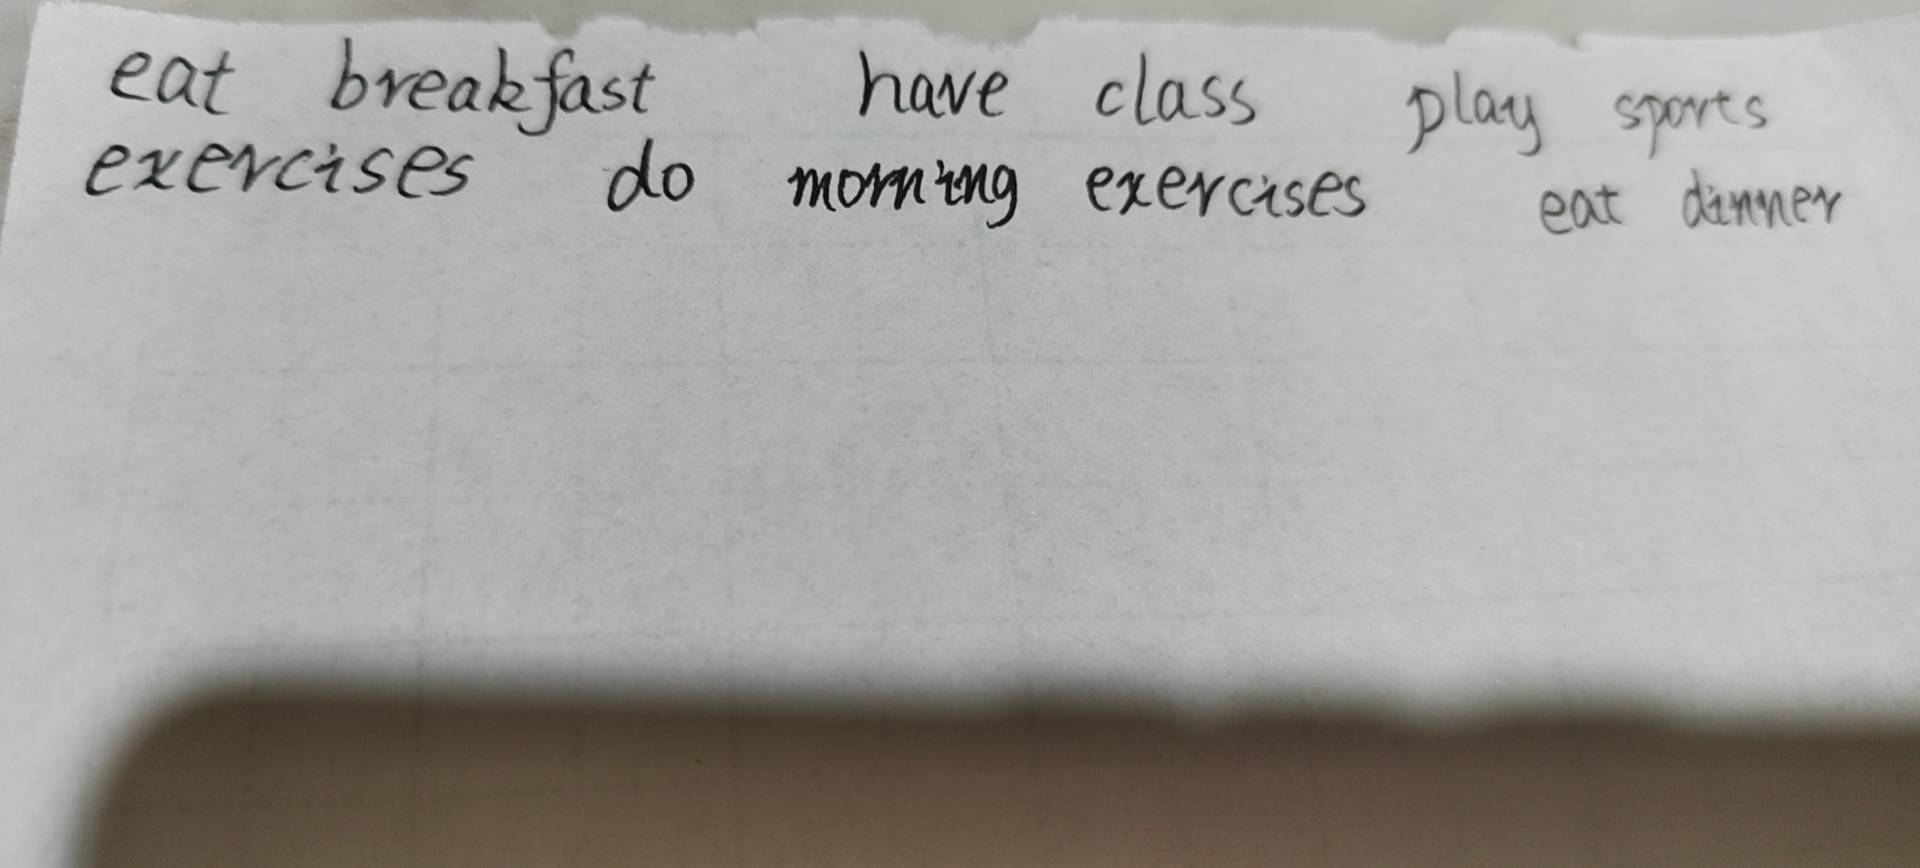 eat breakfast have class play sports
exercises do morning exercises eat dinner